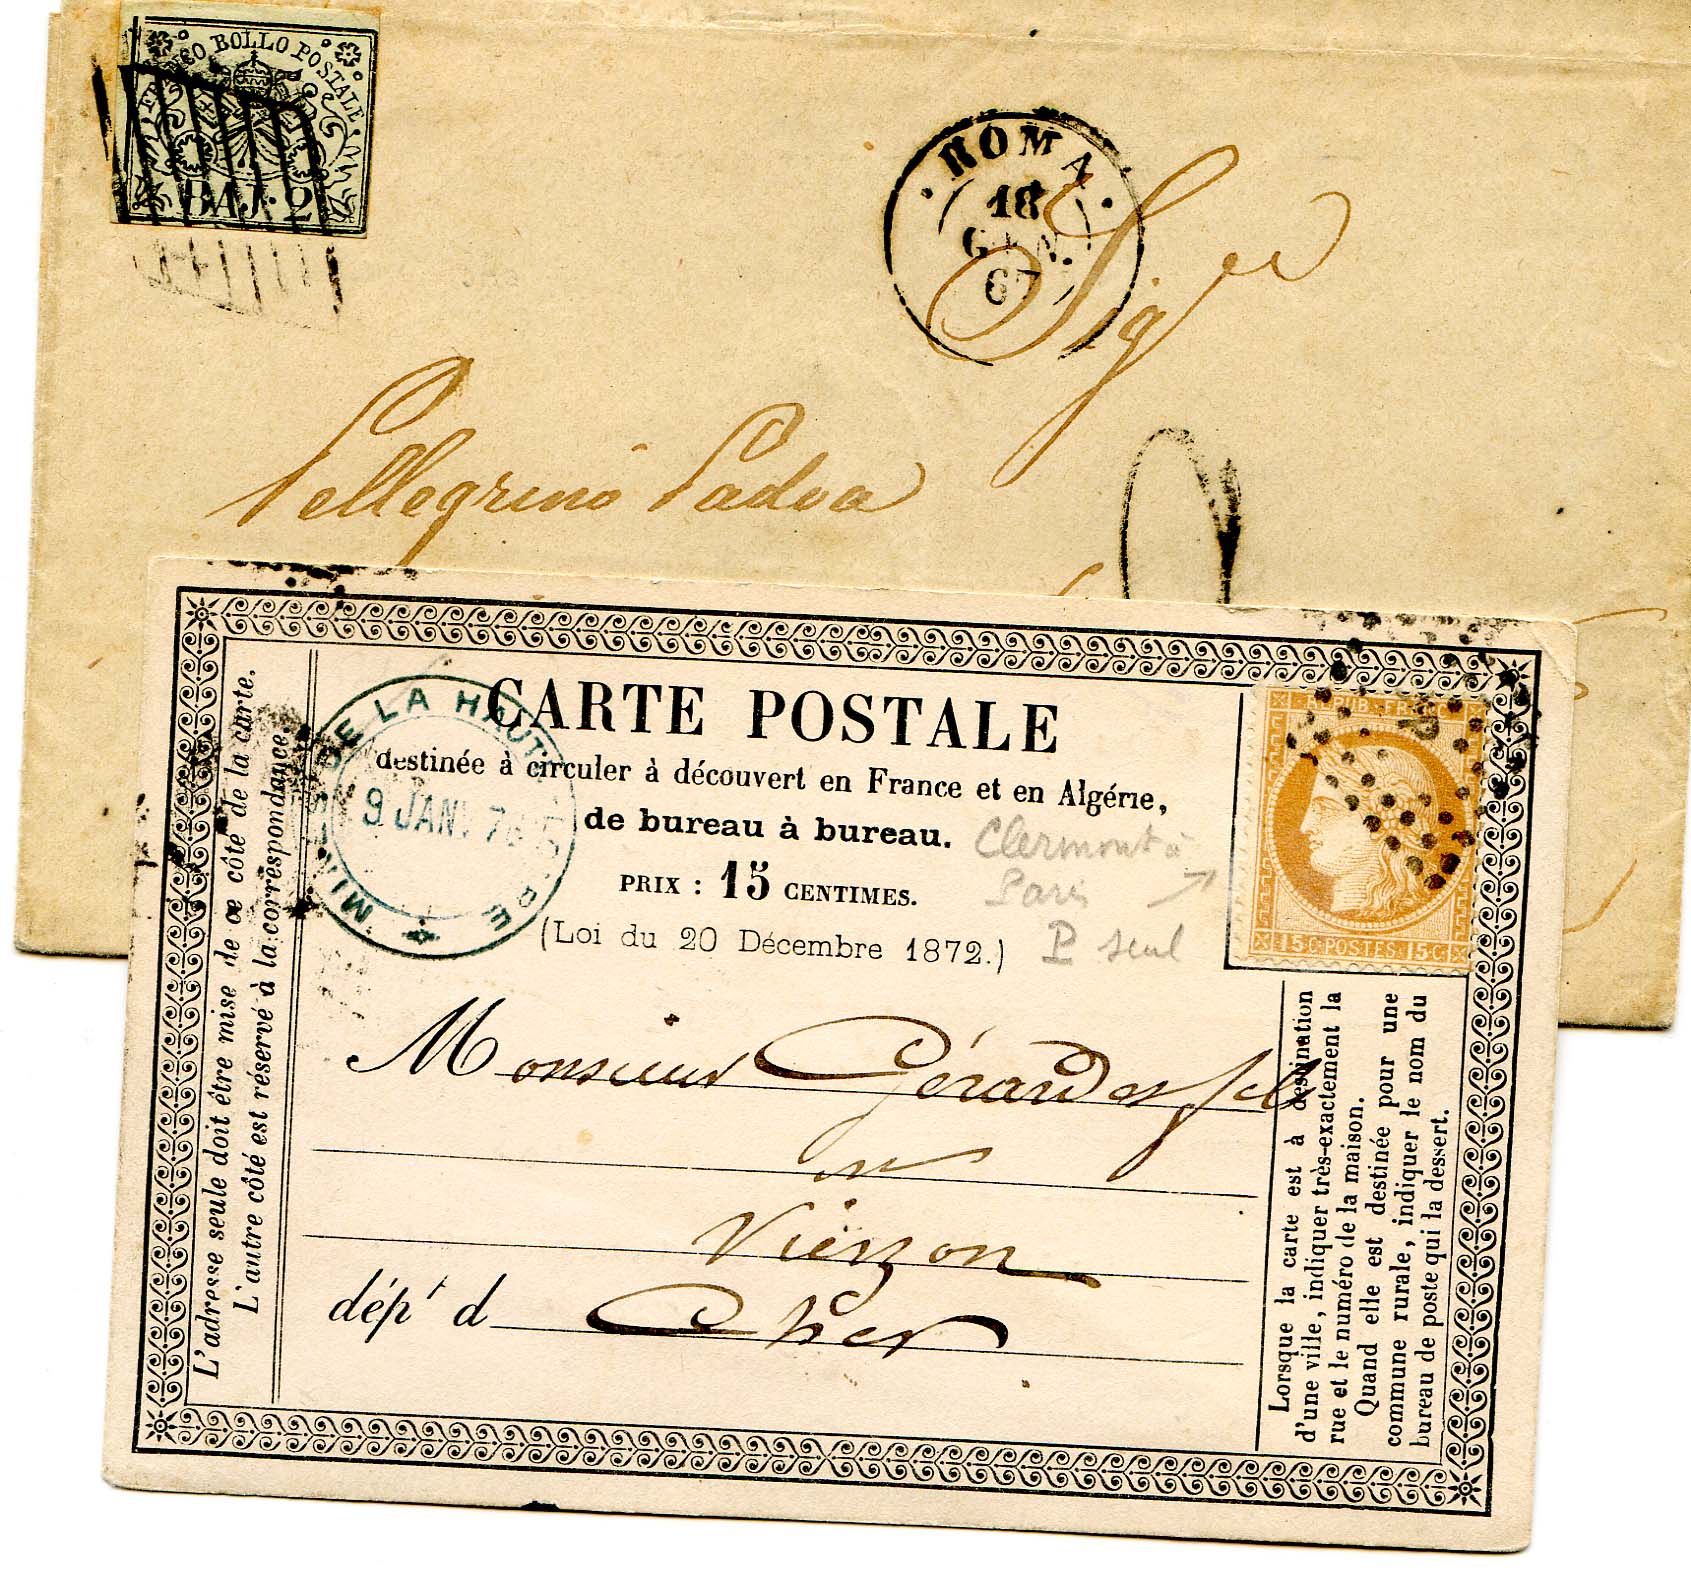 FRANCO BOLLO POSTALE
BAJ. 2
ROMA
18
GEN.
67
Sigre
Pellegrino Padova
2
CARTE POSTALE
destinée à circuler à découvert en France et en Algérie,
de bureau à bureau.
PRIX : 15 CENTIMES.
(Loi du 20 Décembre 1872.)
DE LA HAUTE
9 JANV 76
Clermont à
Paris
P seul
REPUB. FRANC
15 C. POSTES. 15 C.
L'adresse seule doit être mise de ce côté de la carte.
L'autre côté est réservé à la correspondance.
Monsieur Gérard et fils
Vierzon
dépt d Cher
Lorsque la carte est à destination
d'une ville, indiquer très-exactement la
rue et le numéro de la maison.
Quand elle est destinée pour une
commune rurale, indiquer le nom du
bureau de poste qui la dessert.